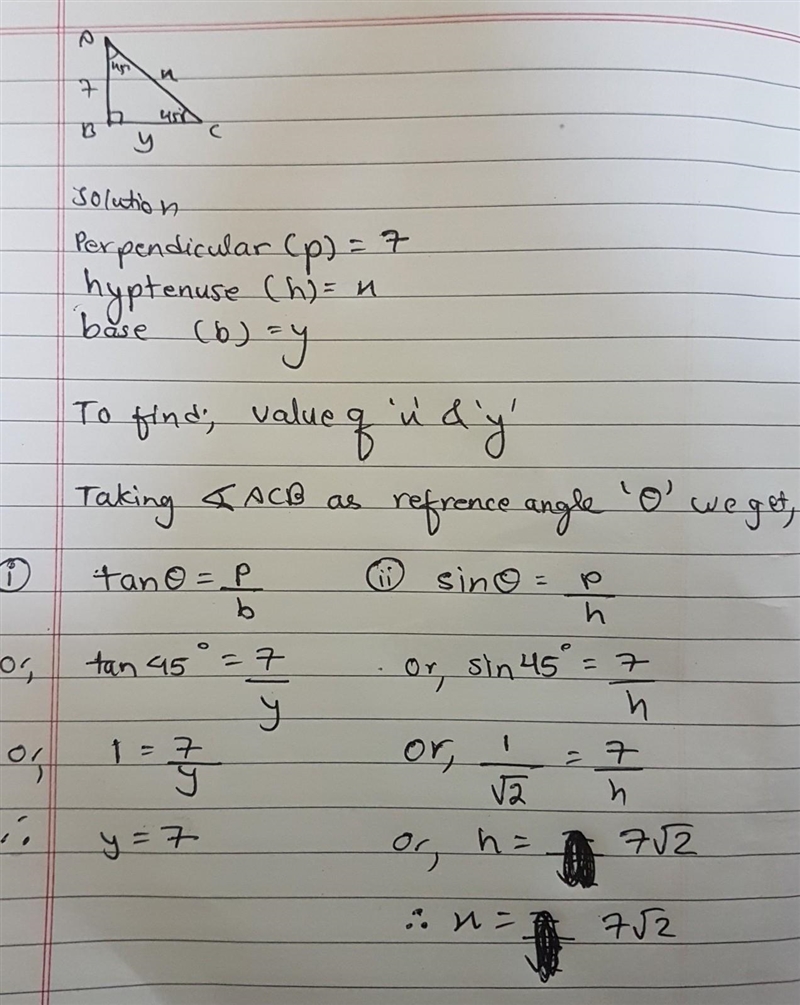 A
45
x
7
45°
B
C
y
Solution
Perpendicular (p) = 7
hyptenuse (h) = x
base (b) = y
To find; value of 'x' & 'y'
Taking ∡ACB as refrence angle 'θ' we get,
(i) tanθ = p/b (ii) sinθ = p/h
or, tan 45° = 7/y or, sin 45° = 7/h
or, 1 = 7/y or, 1/√2 = 7/h
∴ y = 7 or, h = 7√2
∴ x = 7√2